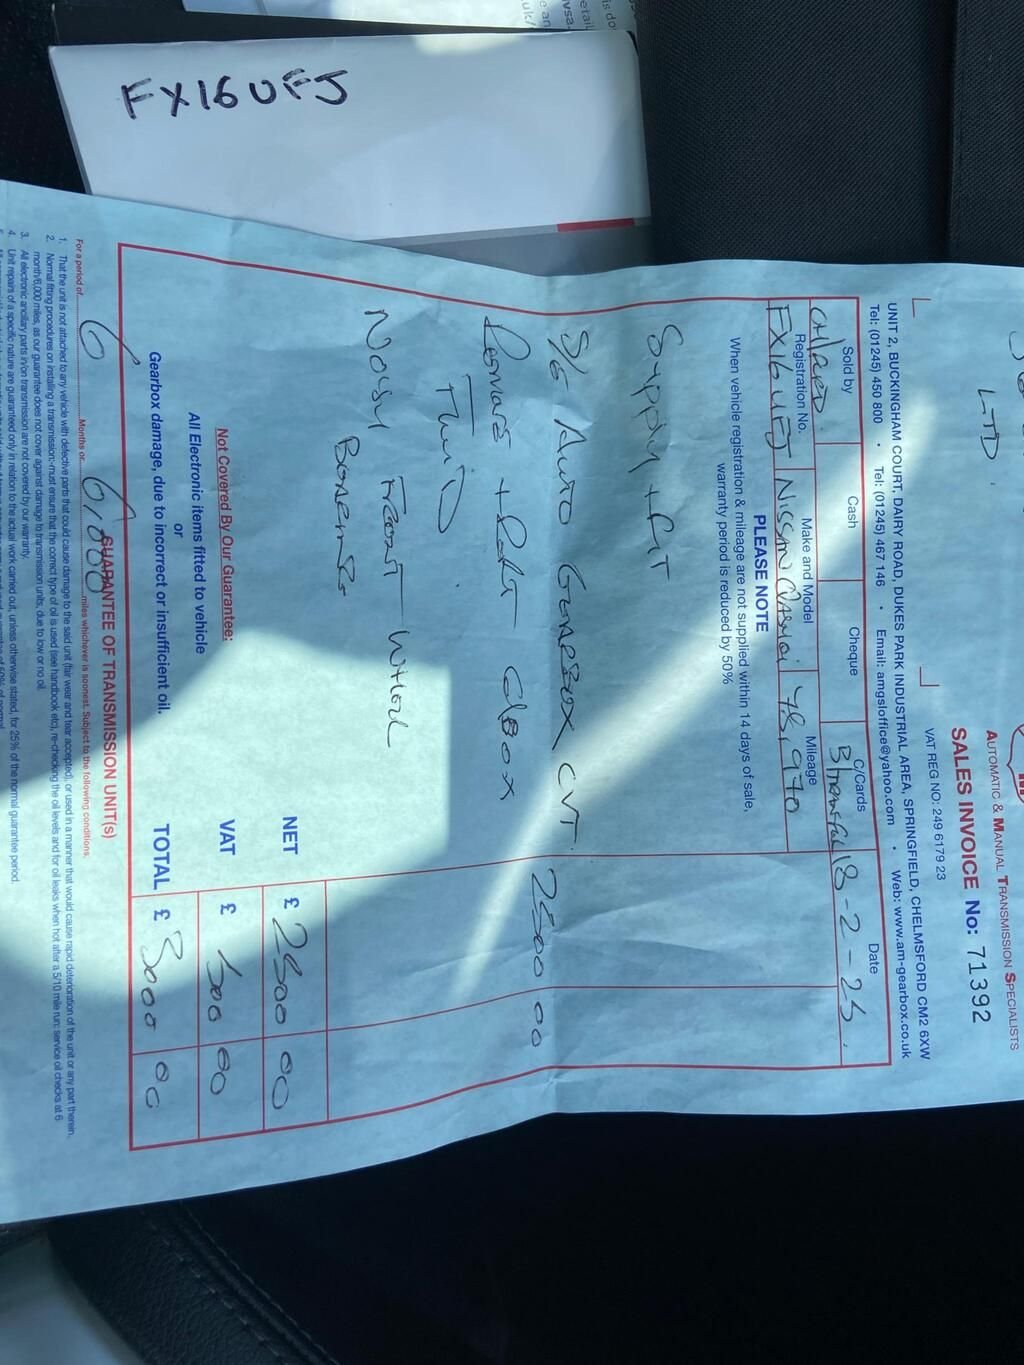 FX16UFJ
LTD.
AUTOMATIC & MANUAL TRANSMISSION SPECIALISTS
SALES INVOICE No: 71392
VAT REG NO: 249 6179 23
UNIT 2, BUCKINGHAM COURT, DAIRY ROAD, DUKES PARK INDUSTRIAL AREA, SPRINGFIELD, CHELMSFORD CM2 6XW
Tel: (01245) 450 800 • Tel: (01245) 467 146 • Email: amgsloffice@yahoo.com • Web: www.am-gearbox.co.uk
Sold by Cash Cheque C/Cards Date
B/transfer 18-2-25.
Registration No. Make and Model Mileage
FX16UFJ Nissan Qashqai 78,970
PLEASE NOTE
When vehicle registration & mileage are not supplied within 14 days of sale,
warranty period is reduced by 50%
Supply + Fit
S/G Auto Gearbox CVT 2500 00
+ GBOX
Fluid
Noisy Front
Bearings
Not Covered By Our Guarantee:
All Electronic items fitted to vehicle
or
Gearbox damage, due to incorrect or insufficient oil.
NET £ 2500 00
VAT £ 500 00
TOTAL £ 3000 00
GUARANTEE OF TRANSMISSION UNIT(s)
For a period of 6 Months or 6,000 miles whichever is soonest. Subject to the following conditions.
1. That the unit is not attached to any vehicle with defective parts that could cause damage to the said unit (fair wear and tear accepted), or used in a manner that would cause rapid deterioration of the unit or any part therein.
2. Normal fitting procedures on installing a transmission:-must ensure that the correct type of oil is used (see handbook etc), re-checking the oil levels and for oil leaks when hot after a 5/10 mile run: service oil checks at 6
month/6,000 miles, as our guarantee does not cover against damage to transmission units, due to low or no oil.
3. All electronic ancillary parts in/on transmission are not covered by our warranty.
4. Unit repairs of a specific nature are guaranteed only in relation to the actual work carried out, unless otherwise stated, for 25% of the normal guarantee period.